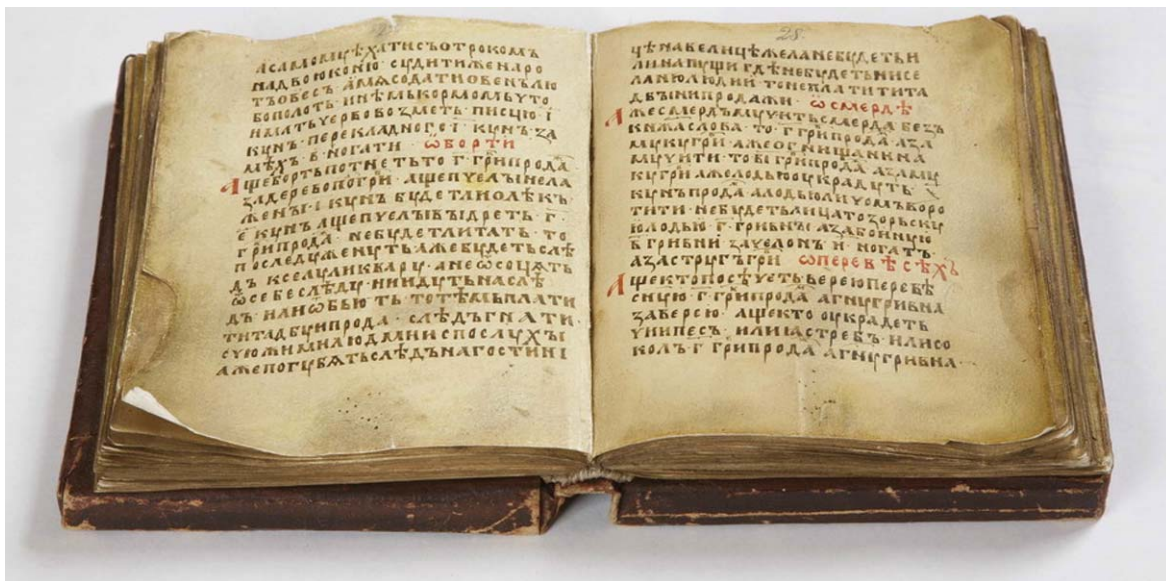 АСАМОМУѢХАТИСЪОТРОКОМЪ
НАДВОЮКОНЮ·СУДИТИЖЕНАРО
ТЪОВЕСЪ·АМѦСОДАТИОВЕНЪЛЮ
БОПОЛОТЬ·ИНѢМЬКОРМОМЬУТО
ИМАТЬУЕРВОВОЗМЕТЬ·ПИСЦЮ·І·
КУНЪ·ПЕРЕКЛАДНОГО·Е·КУНЪ·ЗА
МѢХЪ·В·НОГАТИ· ѠБОРТИ
АЩЕБОРТЬПОТНЕТЬТО·Г·ГРИПРОДА
ЗАДЕРЕВОПОГРИ·АЩЕПУЕЛЫИЕЛА
ЖЕНЫ·І·КУНЪ·БУДЕТЛИОЛѢКЪ
Е·КУНЪ·АЩЕПУЕЛЫВЫДРЕТЬ·Г·
ГРИПРОДА·НЕБУДЕТЛИТАТЬ·ТО
ПОСЛЕДУЖЕНУТЬАЖЕБУДЕТЬСЛѢ
ДЪКСЕЛУЛИКВАРУ·АНЕѾСОЦѦТЬ
ѾСЕБЕСЛѢДУ·НИИДУТЬНАСЛѢ
ДЪ·ИЛИѾБЬЮТЬ·ТОТѢМЬПЛАТИ
ТИТАДБУИПРОДА·СЛѢДЪГНАТИ
СУЮЖИМИЛЮДМИСПОСЛУХЫ
АЖЕПОГУБѦТЬСЛѢДЪНАГОСТИНІ
28.
УѢНАВЕЛИЦѢЖЕЛАНЕБУДЕТЬИ
ЛИНАПУЩИГДѢНЕБУДЕТЬНИСЕ
ЛАНЮЛЮДИИ·ТОНЕПЛАТИТИТА
ДБЫНИПРОДАЖИ· ѠСМЕРДѢ
АЖЕСМЕРДЪМУУИТЬСМЕРДАБЕЗЪ
КНѦЖАСЛОВА·ТО·Г·ГРИПРОДА·АЗЛ
МУКУГРИ·АЖЕОГНИЩАНИНА
МУУИТИ·ТОВІГРИПРОДА·АЗАМУ
КУГРИ·АЖОЛОДЬЮОУКРАДУТЬ·
КУНЪПРОДА·АЛОДЬЮЛИУОМЪВОРО
ТИТИ·НЕБУДЕТЬЛИЦАТОЗОРЬСКУ
ЮЛОДЬЮ·Г·ГРИВНЫ·АЗАБОИНУЮ
В·ГРИВНИ·ЗАУЕЛОНЪ·И·НОГАТЪ·
АЗАСТРУГЪГРИ ѠПЕРЕВѢСѢХЪ
АЩЕКТОПОСѢУЕТЬВЕРЕЮПЕРЕВѢ
СНУЮ·Г·ГРИПРОДА·АГНУГРИВНА
ЗАВЕРЕЮ·АЩЕКТООУКРАДЕТЬ
УИИПЕСЪ·ИЛИꙖСТРЕБЪ·ИЛИСО
КОЛЪ·Г·ГРИПРОДА·АГНУГРИВНА·